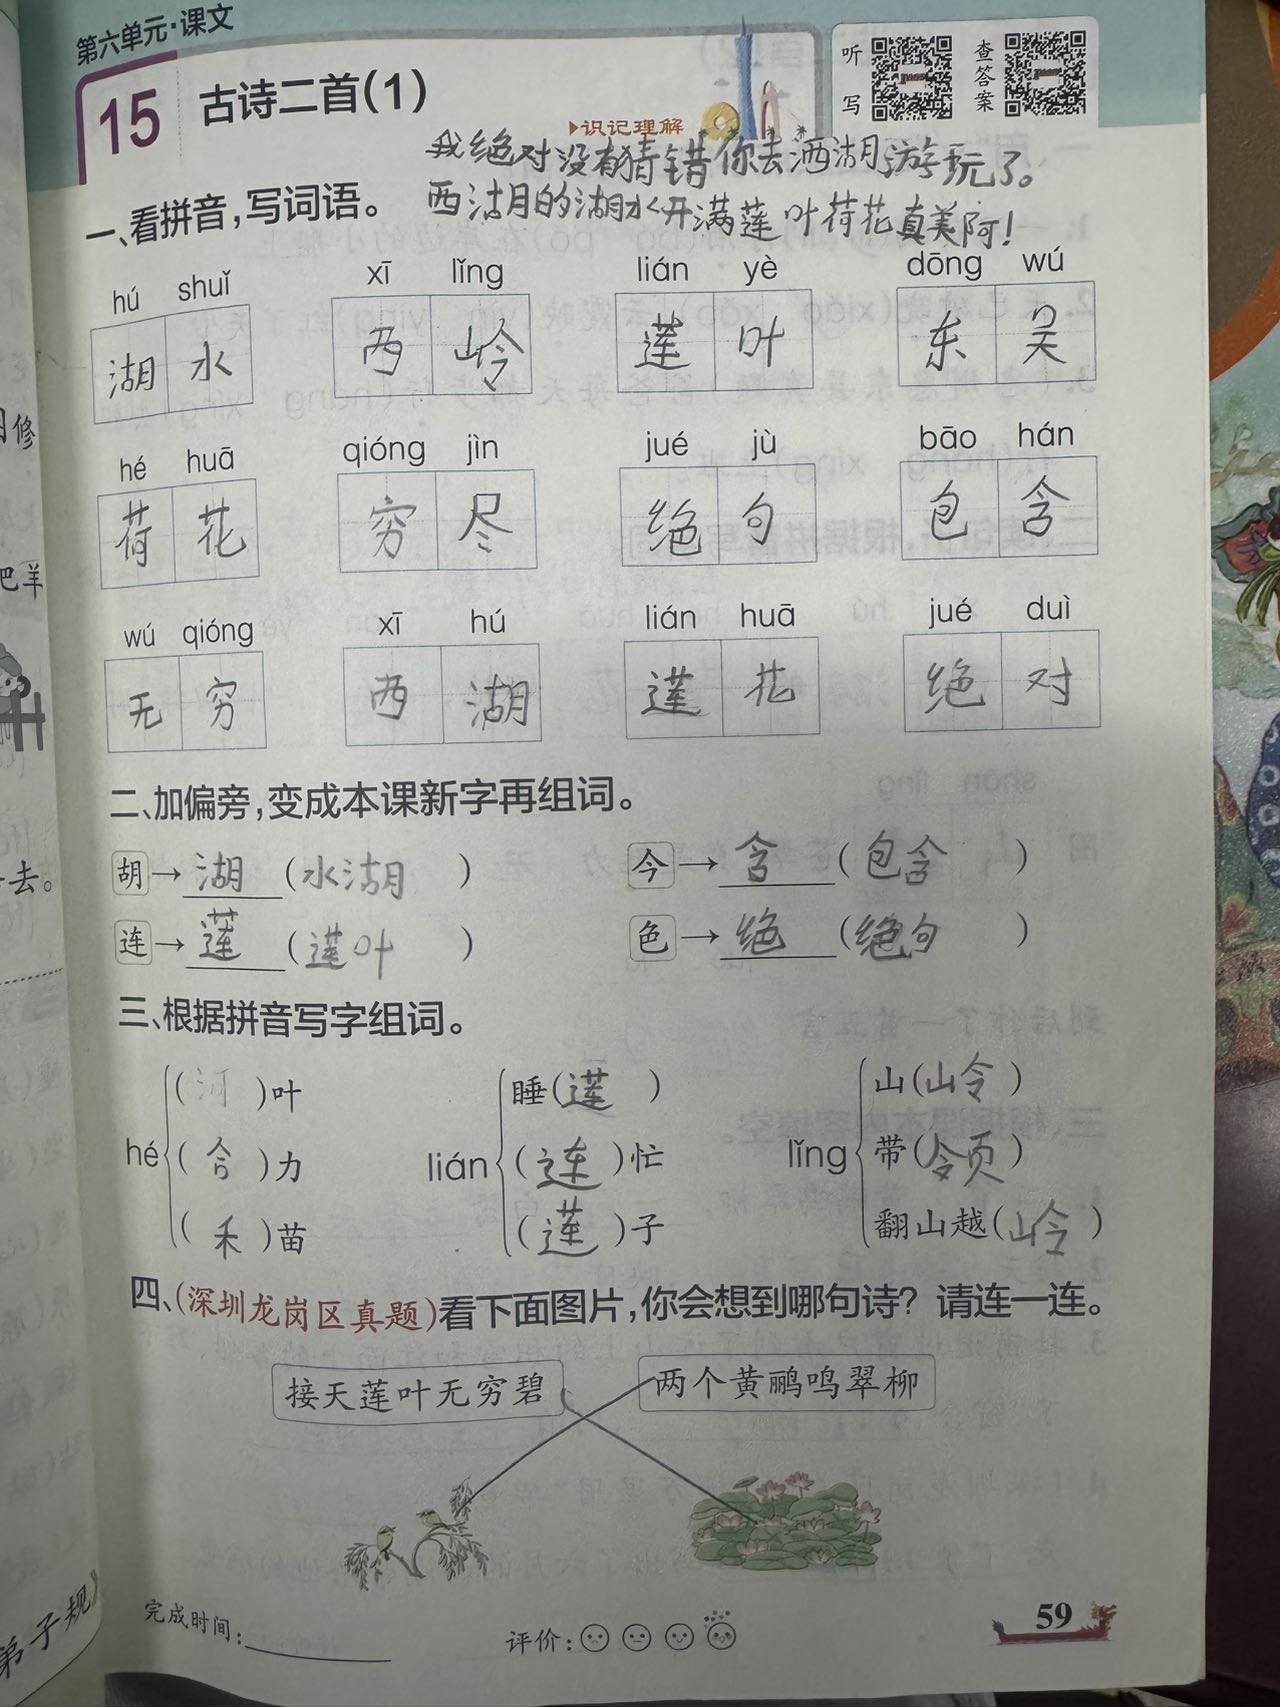 第六单元·课文
15 古诗二首(1)
听写
查答案
▶识记理解
我绝对没有猜错你去洒湖游玩了。
一、看拼音,写词语。
西湖的湖水开满莲叶荷花真美阿!
hú shuǐ xī lǐng lián yè dōng wú
湖水 西岭 莲叶 东吴
hé huā qióng jìn jué jù bāo hán
荷花 穷尽 绝句 包含
wú qióng xī hú lián huā jué duì
无穷 西湖 莲花 绝对
二、加偏旁,变成本课新字再组词。
胡→湖(水湖) 今→含(包含)
连→莲(莲叶) 色→绝(绝句)
三、根据拼音写字组词。
(河)叶 睡(莲) 山(岭)
hé (合)力 lián (连)忙 lǐng 带(领)
(禾)苗 (莲)子 翻山越(岭)
四、(深圳龙岗区真题)看下面图片,你会想到哪句诗?请连一连。
接天莲叶无穷碧 两个黄鹂鸣翠柳
完成时间:
评价:
59
修
把羊
去。
弟子规》